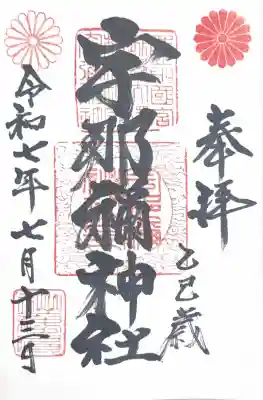 奉拝
乙巳歳
宇那禰神社
令和七年七月十三日